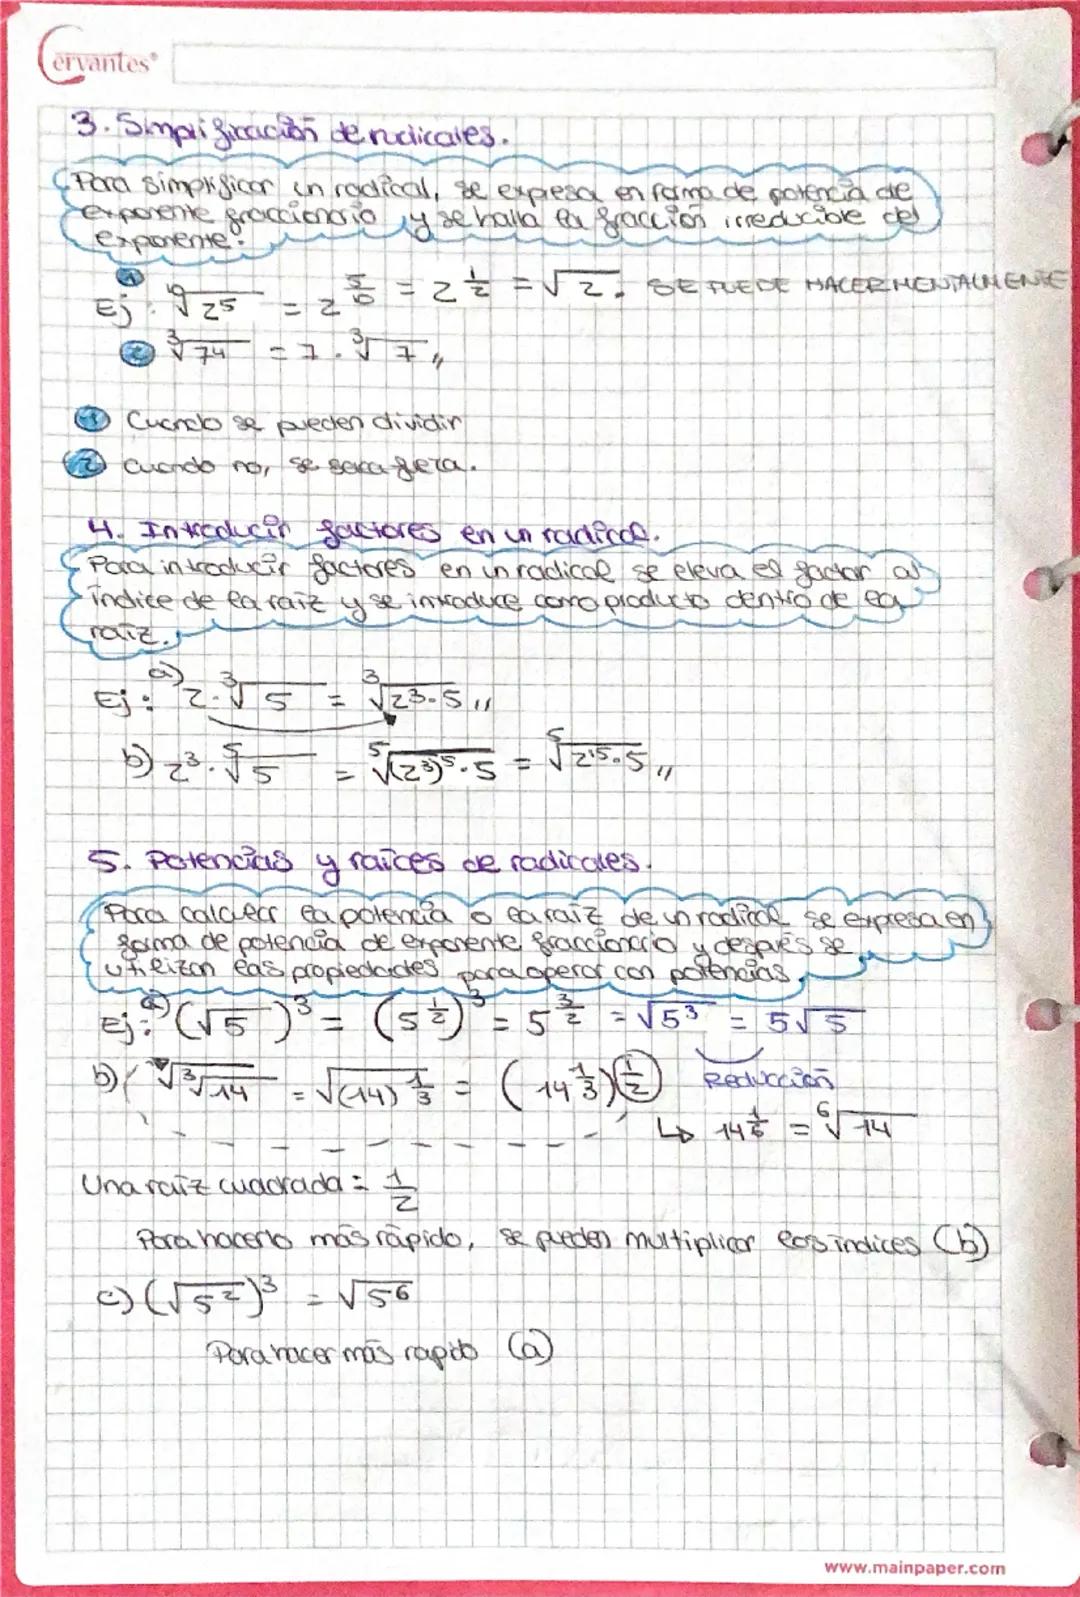 Cervantes®
3. Simplificación de radicales.
Para simplificar un radical, se expresa en forma de potencia de
exponente fraccionario y se halla la fracción irreducible del
exponente.
Ej: ① ¹⁰√2⁵ = 2^(5/10) = 2^(1/2) = √2. SE PUEDE HACER MENTALMENTE
② ³√7⁴ = 7 · ³√7 ,,
① Cuando se pueden dividir
② cuando no, se saca fuera.
4. Introducir factores en un radical.
Para introducir factores en un radical se eleva el factor al
índice de la raíz y se introduce como producto dentro de la
raíz.
Ej: a) 2 · ³√5 = ³√2³·5 ,,
b) 2³ · ⁵√5 = ⁵√(2³)⁵·5 = ⁵√2¹⁵·5 ,,
5. Potencias y raíces de radicales.
Para calcular la potencia o la raíz de un radical se expresa en
forma de potencia de exponente fraccionario y después se
utilizan las propiedades para operar con potencias.
Ej: a) (√5)³ = (5^(1/2))³ = 5^(3/2) = √5³ = 5√5
b) √³√14 = √(14)^(1/3) = (14^(1/3))^(1/2) Reducción
↳ 14^(1/6) = ⁶√14
Una raíz cuadrada = 1/2
Para hacerlo más rápido, se pueden multiplicar los índices (b)
c) (√5²)³ = √5⁶
Para hacer más rapido (a)
www.mainpaper.com